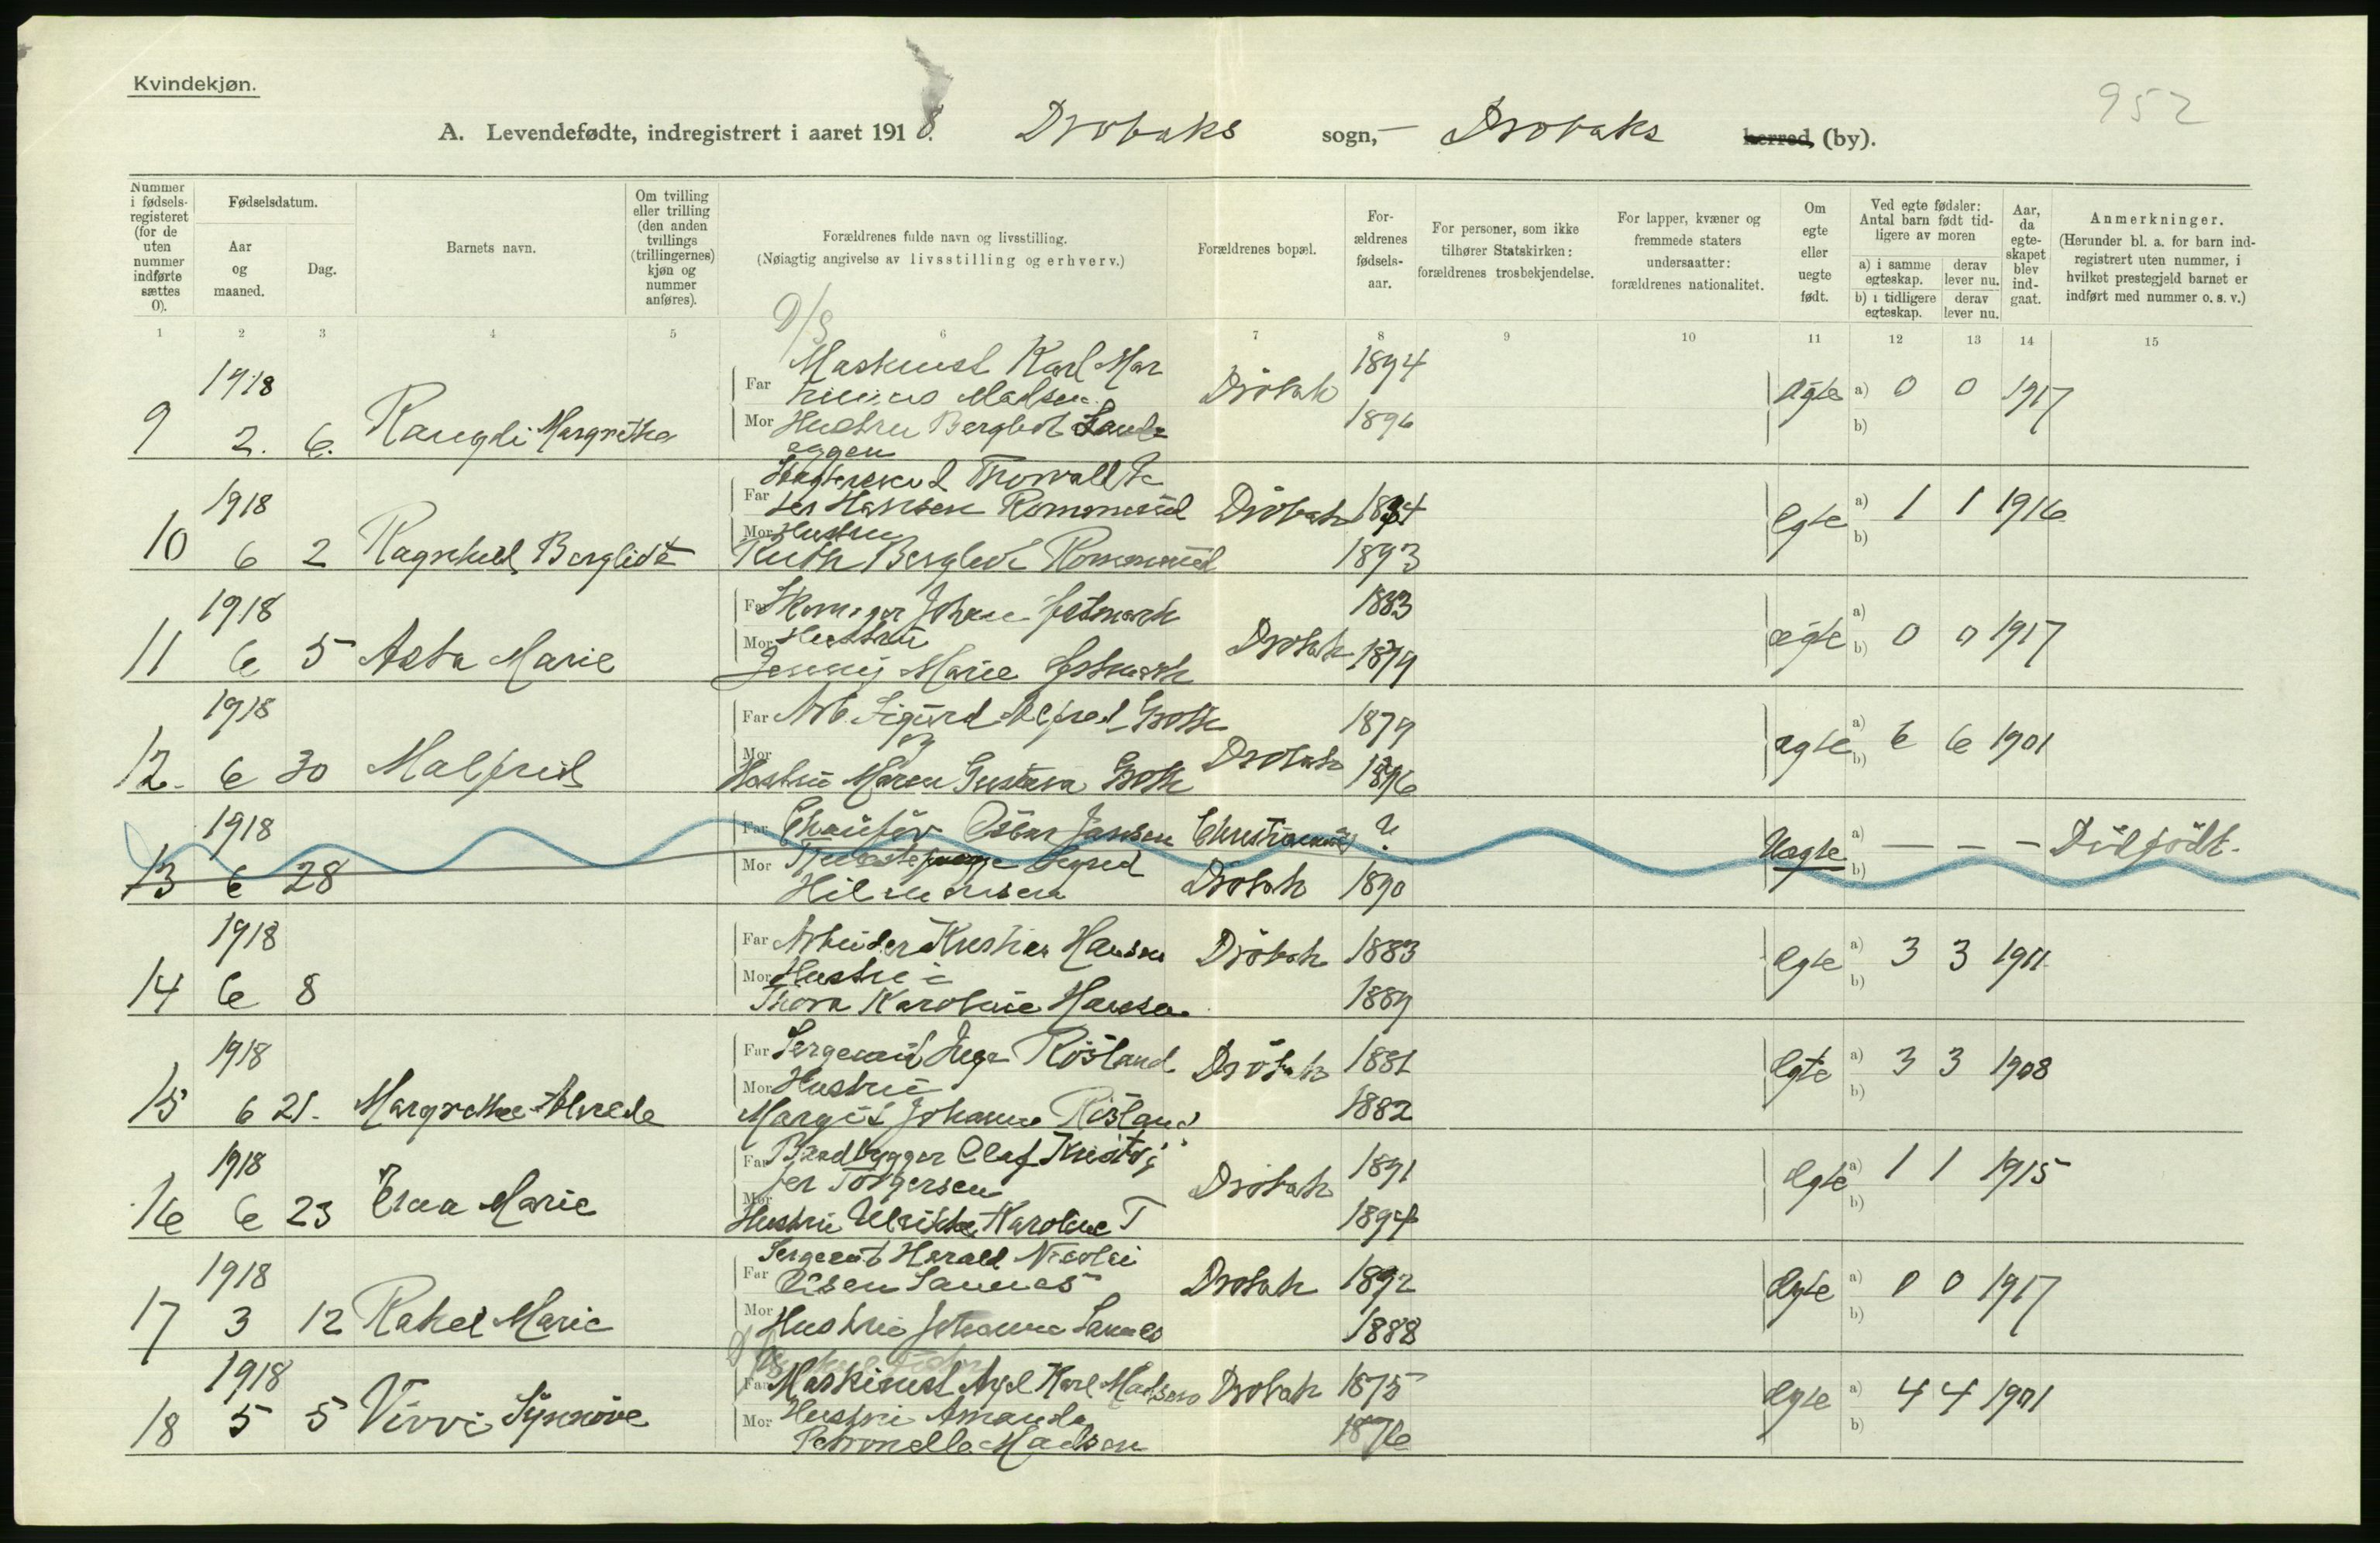 Kvindekjøn.
952
A. Levendefødte, indregistrert i aaret 1918. Drøbaks sogn,- Drøbaks herred, (by).
Nummer i fødsels-registeret (for de uten nummer indførte sættes 0).
Fødselsdatum.
Aar og maaned.
Dag.
Barnets navn.
Om tvilling eller trilling (den anden tvillings (trillingernes) kjøn og nummer anføres).
Forældrenes fulde navn og livsstilling.
(Nøiagtig angivelse av livsstilling og erhverv.)
Forældrenes bopæl.
For-ældrenes fødsels-aar.
For personer, som ikke tilhører Statskirken: forældrenes trosbekjendelse.
For lapper, kvæner og fremmede staters undersaatter: forældrenes nationalitet.
Om egte eller uegte født.
Ved egte fødsler: Antal barn født tid-ligere av moren
a) i samme egteskap.
derav lever nu.
b) i tidligere egteskap.
derav lever nu.
Aar, da egte-skapet blev ind-gaat.
Anmerkninger.
(Herunder bl. a. for barn ind-registrert uten nummer, i hvilket prestegjeld barnet er indført med nummer o. s. v.)
1 2 3 4 5 6 7 8 9 10 11 12 13 14 15
D/S
1918
Far Maskinist Karl Mar
Madsen Drøbak 1894
9 2. 6. Margretha
Mor Hustru Bergliot 1896
Ægte a) 0 0 1917
b)
1918
Far Thorvald Pe
ter Hansen Rommerud Drøbak
10 6 2 Ragnhild Bergliot
Mor Hustru
Ruth Bergliot Rommerud 1893
Egte a) 1 1 1916
b)
1918
Far Johan 1883
Mor Hustru Drøbak 1879
11 6 5 Asta Marie
Jenny Marie
ægte a)
b) 0 0 1917
1918
Far Arb. Sigurd Alfred Groth 1879
12. 6 30 Malfrid
Mor Drøbak
Hustru Maren Gustava Groth
ægte a) 6 6 1901
b)
1918
Far Chauffør Oskar Jansen Christiania ?
13 6 28
Mor Tjenestepige Sigrid
Drøbak 1890
Uegte a) — — — Dødfødt.
b)
1918
Far Arbeider Kristian Hansen Drøbak 1883
14 6 8
Mor Hustru
Thora Karoline Hansen 1889
Egte a) 3 3 1911
b)
1918
Far Sergeant Inge Røsland Drøbak 1881
15 6 21. Margrethe
Mor Hustru
Margit Johanne Røsland 1882
Egte a) 3 3 1908
b)
1918
Far Baadbygger Olaf Kristof
fer Torgersen Drøbak 1891
16 6 23 Erna Marie
Mor
Hustru Ulrikke Karoline T 1894
Egte a) 1 1 1915
b)
1918
Sergeant Harald Nicolai
Far Olsen Sannes Drøbak 1892
17 3 12 Rakel Marie
Mor Hustru Johanne Sannes 1888
Egte a) 0 0 1917
b)
1918
Far Maskinist Axel Karl Madsen Drøbak 1875
18 5 5 Vivvi Synnøve
Mor Hustru Amanda
Petronella Madsen 1876
Egte a) 4 4 1901
b)